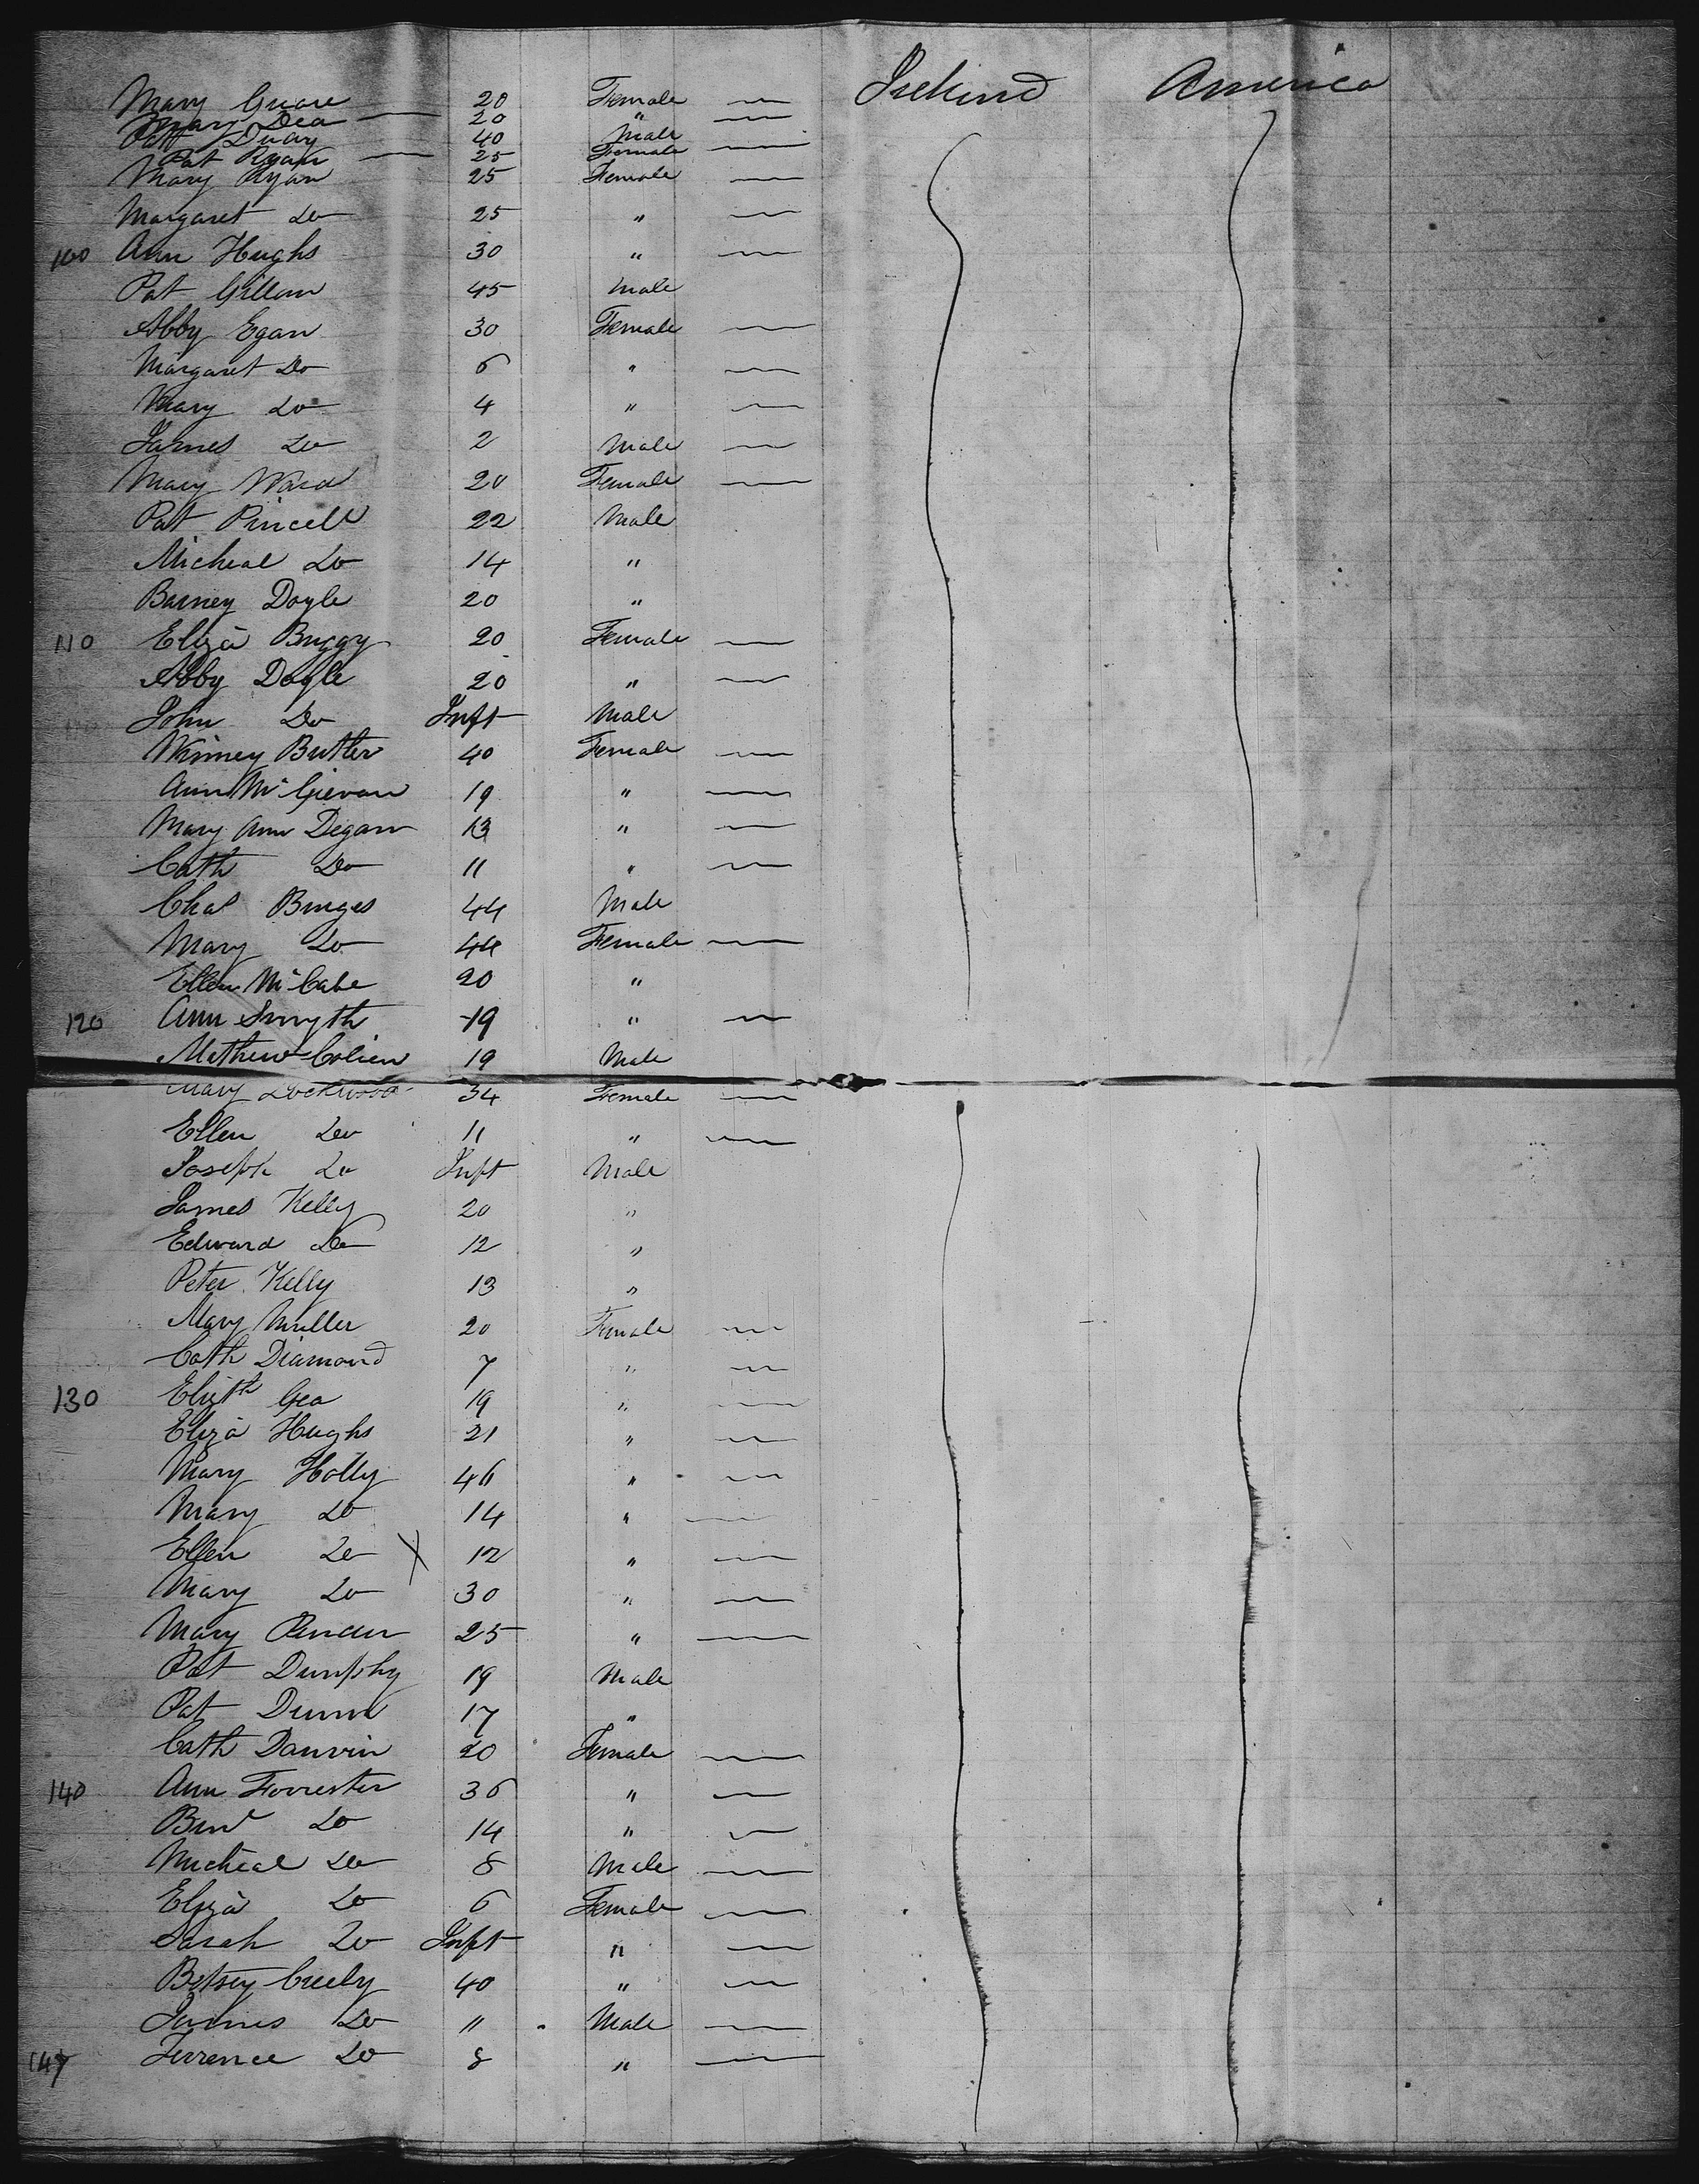 Ireland America
Mary Gruare 20 Female
Mary Dea 20 "
Patt Duay 40 Male
Pat Ryan 25 Female
Mary Ryan 25 Female
Margaret Do 25 "
100 Ann Hughs 30 "
Pat Gillan 45 Male
Abby Egan 30 Female
Margaret Do 6 "
Mary Do 4 "
James Do 2 Male
Mary Ward 20 Female
Pat Pincell 22 Male
Micheal Do 14 "
Barney Doyle 20 "
110 Eliza Buggy 20 Female
Abby Doyle 20 "
John Do Inft Male
Winney Butler 40 Female
Ann McGievan 19 "
Mary Ann Degan 13 "
Cath Do 11 "
Chas Burges 44 Male
Mary Do 44 Female
Ellen McCabe 20 "
120 Ann Smyth 19 "
Mathew Colien 19 Male
Mary Lockwood 34 Female
Ellen Do 11 "
Joseph Do Inft Male
James Kelly 20 "
Edward Do 12 "
Peter Kelly 13 "
Mary Muller 20 Female
Cath Diamond 7 "
130 Elizth Gea 19 "
Eliza Hughs 21 "
Mary Holly 46 "
Mary Do 14 "
Ellen Do X 12 "
Mary Do 30 "
Mary 25 "
Pat Dunphy 19 Male
Pat Dunn 17 "
Cath Danvin 20 Female
140 Ann Forrester 36 "
Do 14 "
Micheal Do 8 Male
Eliza Do 6 Female
Sarah Do Inft "
Betsey Creely 40 "
James Do 11 Male
147 Terrence Do 8 "